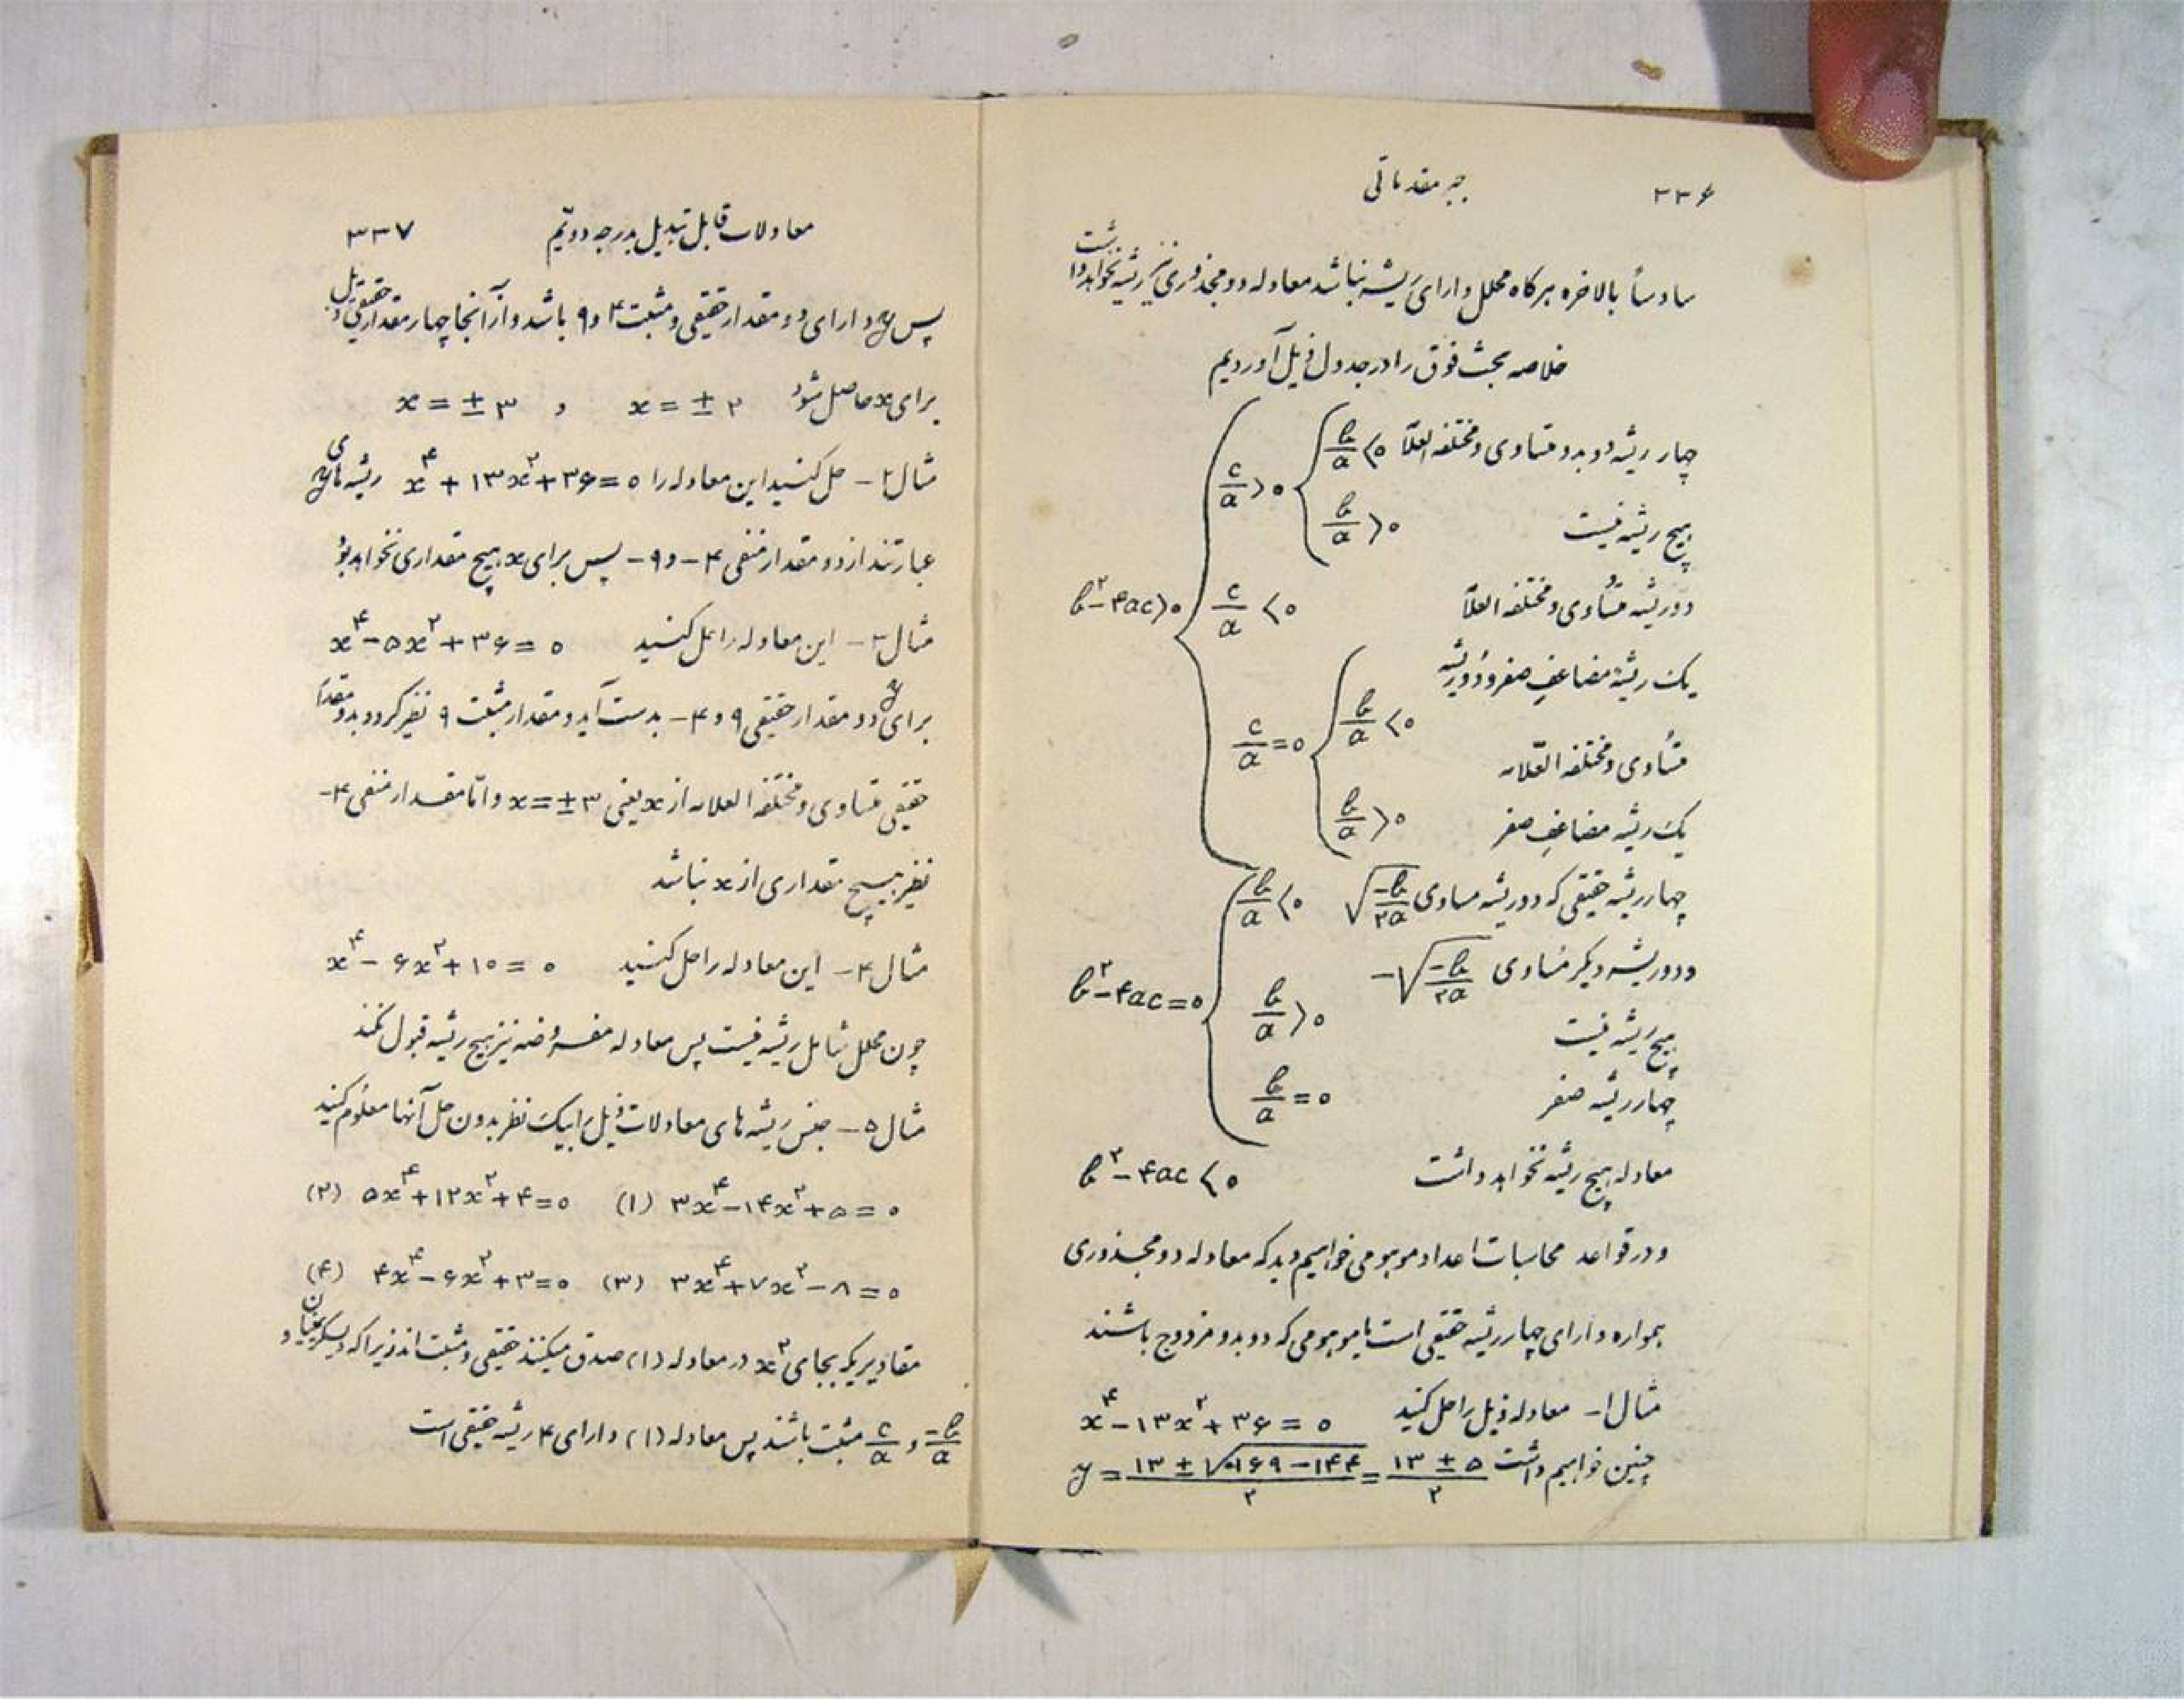 ۲۳۶ جبر مقدماتی
سادساً بالاخره هرگاه محلل دارای ریشه نباشد معادله دو مجذوری نیز ریشه نخواهد داشت
خلاصه بحث فوق را در جدول ذیل آوردیم
b²-۴ac>۰ { c/a>۰ { b/a<۰ چهار ریشه دو بدو متساوی و مختلفه العلا
b/a>۰ هیچ ریشه نیست
c/a<۰ دو ریشه متساوی و مختلفه العلا
c/a=۰ { b/a<۰ یک ریشه مضاعف صفر و دو ریشه
متساوی و مختلفه العلامه
b/a>۰ یک ریشه مضاعف صفر
b²-۴ac=۰ { b/a<۰ چهار ریشه حقیقی که دو ریشه مساوی √(-b/۲a)
و دو ریشه دیگر مساوی -√(-b/۲a)
b/a>۰ هیچ ریشه نیست
b/a=۰ چهار ریشه صفر
b²-۴ac<۰ معادله هیچ ریشه نخواهد داشت
و در قواعد محاسبات اعداد موهومی خواهیم دید که معادله دو مجذوری
همواره دارای چهار ریشه حقیقی است یا موهومی که دو بدو مزدوج باشند
مثال ۱- معادله ذیل را حل کنید x⁴-۱۳x²+۳۶=۰
چنین خواهیم داشت y=(۱۳±√(۱۶۹-۱۴۴))/۲=(۱۳±۵)/۲
معادلات قابل تبدیل بدرجه دویّم ۲۳۷
پس y دارای دو مقدار حقیقی و مثبت ۴ و ۹ باشد و از آنجا چهار مقدار حقیقی ذیل
برای x حاصل شود x=±۲ و x=±۳
مثال ۲- حل کنید این معادله را x⁴+۱۳x²+۳۶=۰ ریشه های y
عبارتند از دو مقدار منفی ۴- و ۹- پس برای x هیچ مقداری نخواهد بود
مثال ۳- این معادله را حل کنید x⁴-۵x²+۳۶=۰
برای y دو مقدار حقیقی ۹ و ۴- بدست آید و مقدار مثبت ۹ نظیر گردد بدو مقدار
حقیقی متساوی و مختلفه العلامه از x یعنی x=±۳ و امّا مقدار منفی ۴-
نظیر هیچ مقداری از x نباشد
مثال ۴- این معادله را حل کنید x⁴-۶x²+۱۰=۰
چون محلل شامل ریشه نیست پس معادله مفروضه نیز هیچ ریشه قبول نکند
مثال ۵- جنس ریشه های معادلات ذیل را بیک نظر بدون حل آنها معلوم کنید
(۱) ۳x⁴-۱۴x²+۵=۰ (۲) ۵x⁴+۱۲x²+۴=۰
(۳) ۳x⁴+۷x²-۸=۰ (۴) ۴x⁴-۶x²+۳=۰
مقادیریکه بجای x² در معادله (۱) صدق میکنند حقیقی و مثبت اند زیرا که دیسکریمینان و
-b/a و c/a مثبت باشند پس معادله (۱) دارای ۴ ریشه حقیقی است